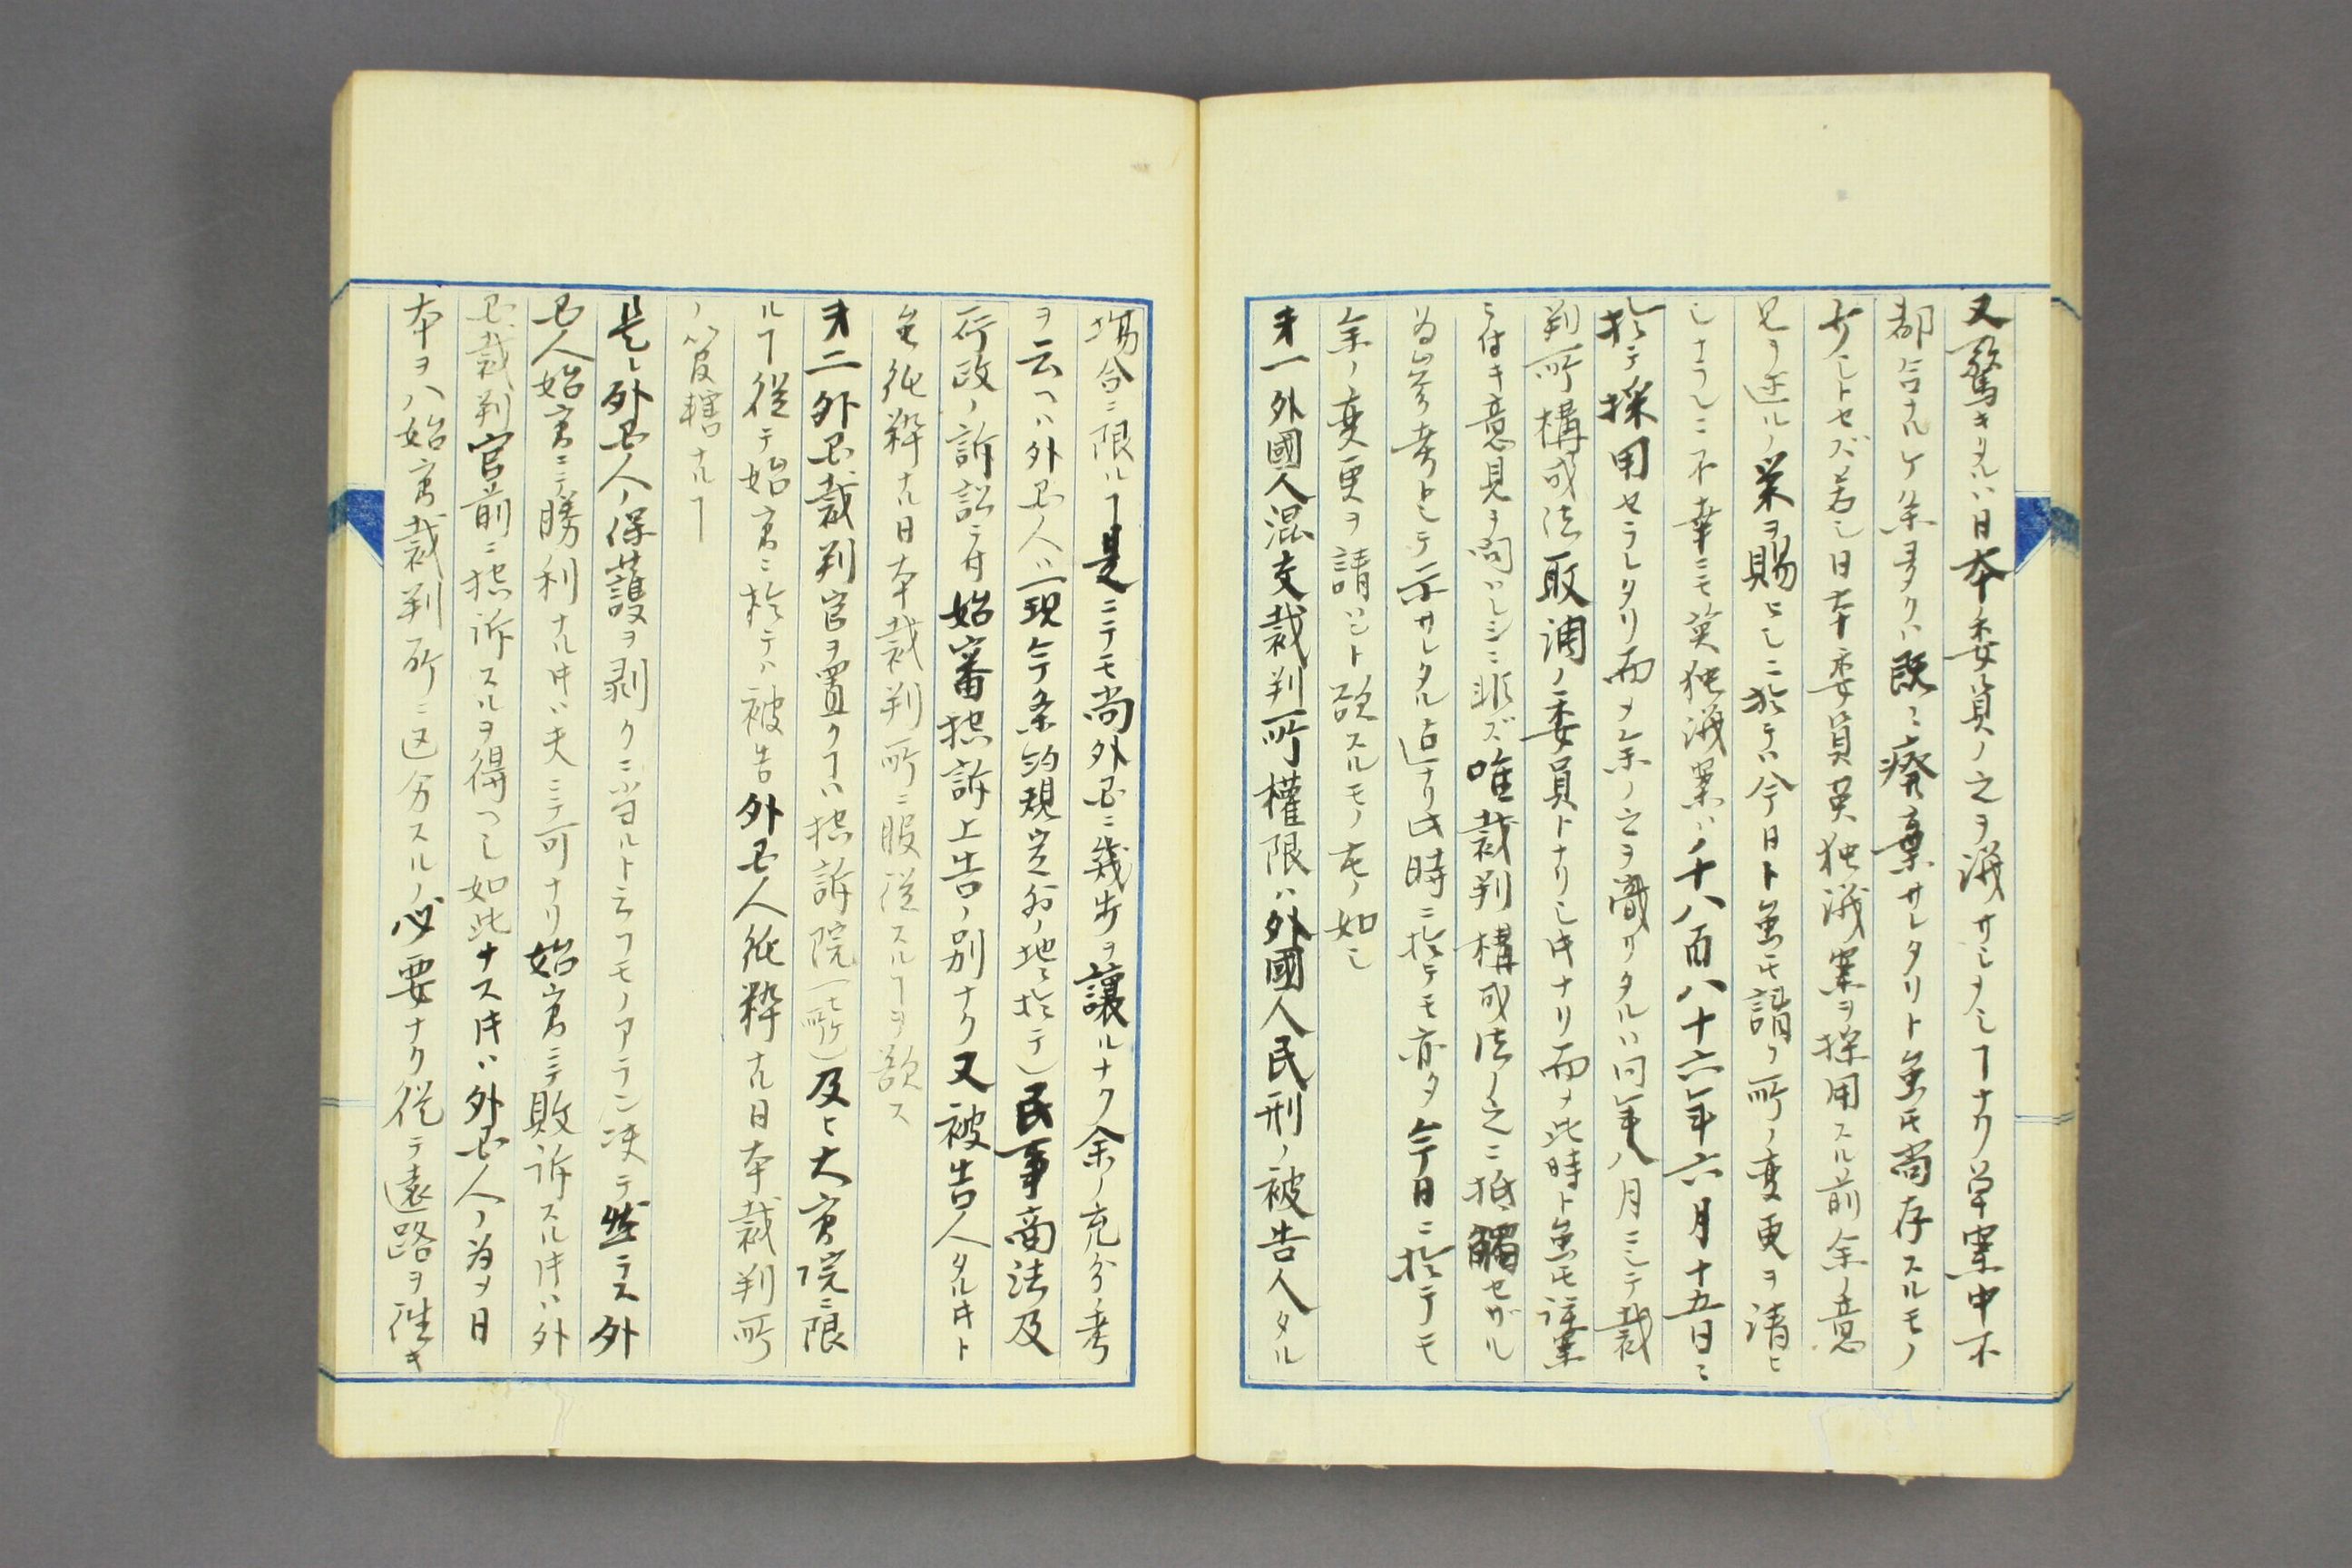 又驚キタルハ日本委員ノ之ヲ議サシメシヿナク草案中不
都合ナルケ条多クハ既ニ廃棄サレタリト雖モ尚存スルモノ
少シトセズ若シ日本委員英独議案ヲ採用スル前余ノ意
見ヲ述ルノ栄ヲ賜ヒシニ於テハ今日ト雖モ請フ所ノ変更ヲ請ヒ
シナラン不幸ニモ英独議案ハ千八百八十六年六月十五日ニ
於テ採用セラレタリ而メ余ノ之ヲ識リタルハ同年八月ニシテ裁
判所構成法取調ノ委員トナリシ時ナリ而メ此時ト雖モ該案
ニ付キ意見ヲ問ハレシニ非ズ唯裁判構成法ノ之ニ抵觸セザル
為参考トシテ示サレタル迠ナリ此時ニ於テモ亦タ今日ニ於テモ
余ノ変更ヲ請ハント欲スルモノ左ノ如シ
第一外國人混交裁判所權限ハ外國人民刑ノ被告人タル
場合ニ限ルヿ是ニテモ尚外国ニ幾歩ヲ讓ルナク余ノ充分ノ考
ヲ云ヘハ外国人ハ(現今条約規定外ノ地ニ於テ)民事商法及
行政ノ訴訟ニ付始審控訴上告ノ別ナク又被告人タル時ト
雖純粋ナル日本裁判所ニ服從スルヿヲ欲ス
第二外国裁判官ヲ置クヿハ控訴院(一ヶ所)及ヒ大審院ニ限
ルヿ從テ始審ニ於テハ被告外国人純粋ナル日本裁判所
ノ管轄ナルヿ
是レ外国人ノ保護ヲ剥クニ当ルト云フモノアラン決テ然ラス外
国人始審ニテ勝利ナル時ハ夫ニテ可ナリ始審ニテ敗訴スル時ハ外
国裁判官前ニ控訴スルヲ得ヘシ如此ナス時ハ外国人ノ為メ日
本ヲ八始審裁判所ニ区分スルノ必要ナク從テ遠路ヲ往キ